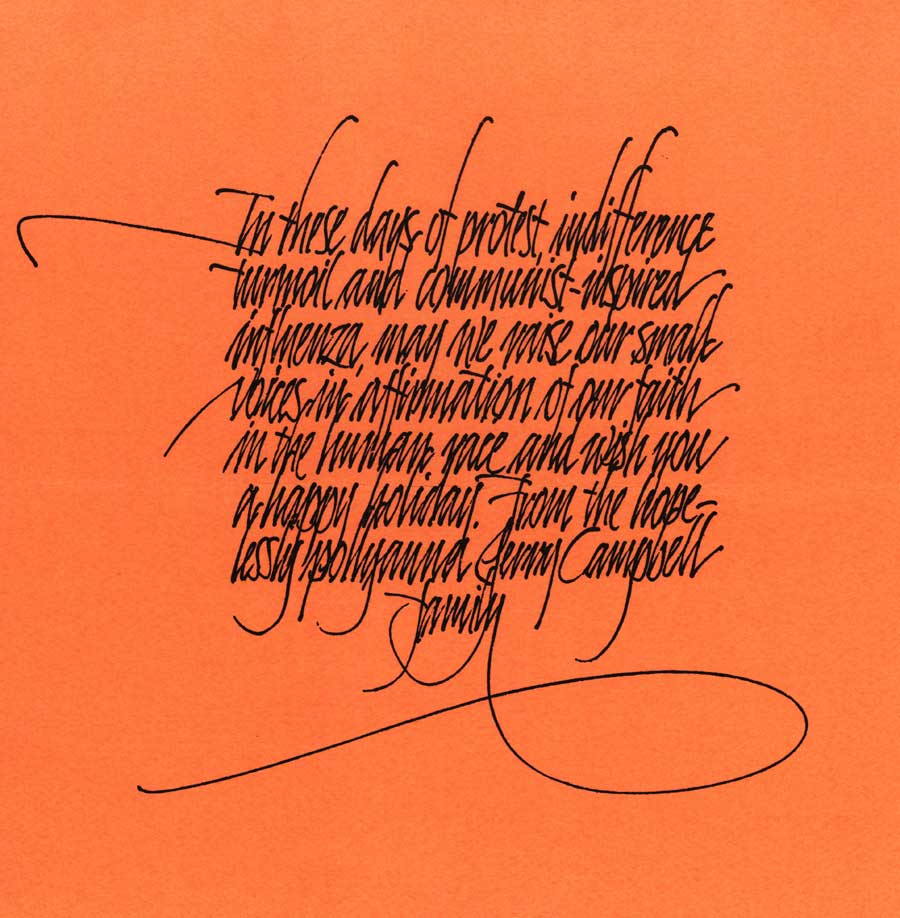 In these days of protest, indifference
turmoil and communist-inspired
influenza, may we raise our small
voices in affirmation of our faith
in the human race and wish you
a happy holiday. From the hope-
lessly pollyanna Jerry Campbell
family